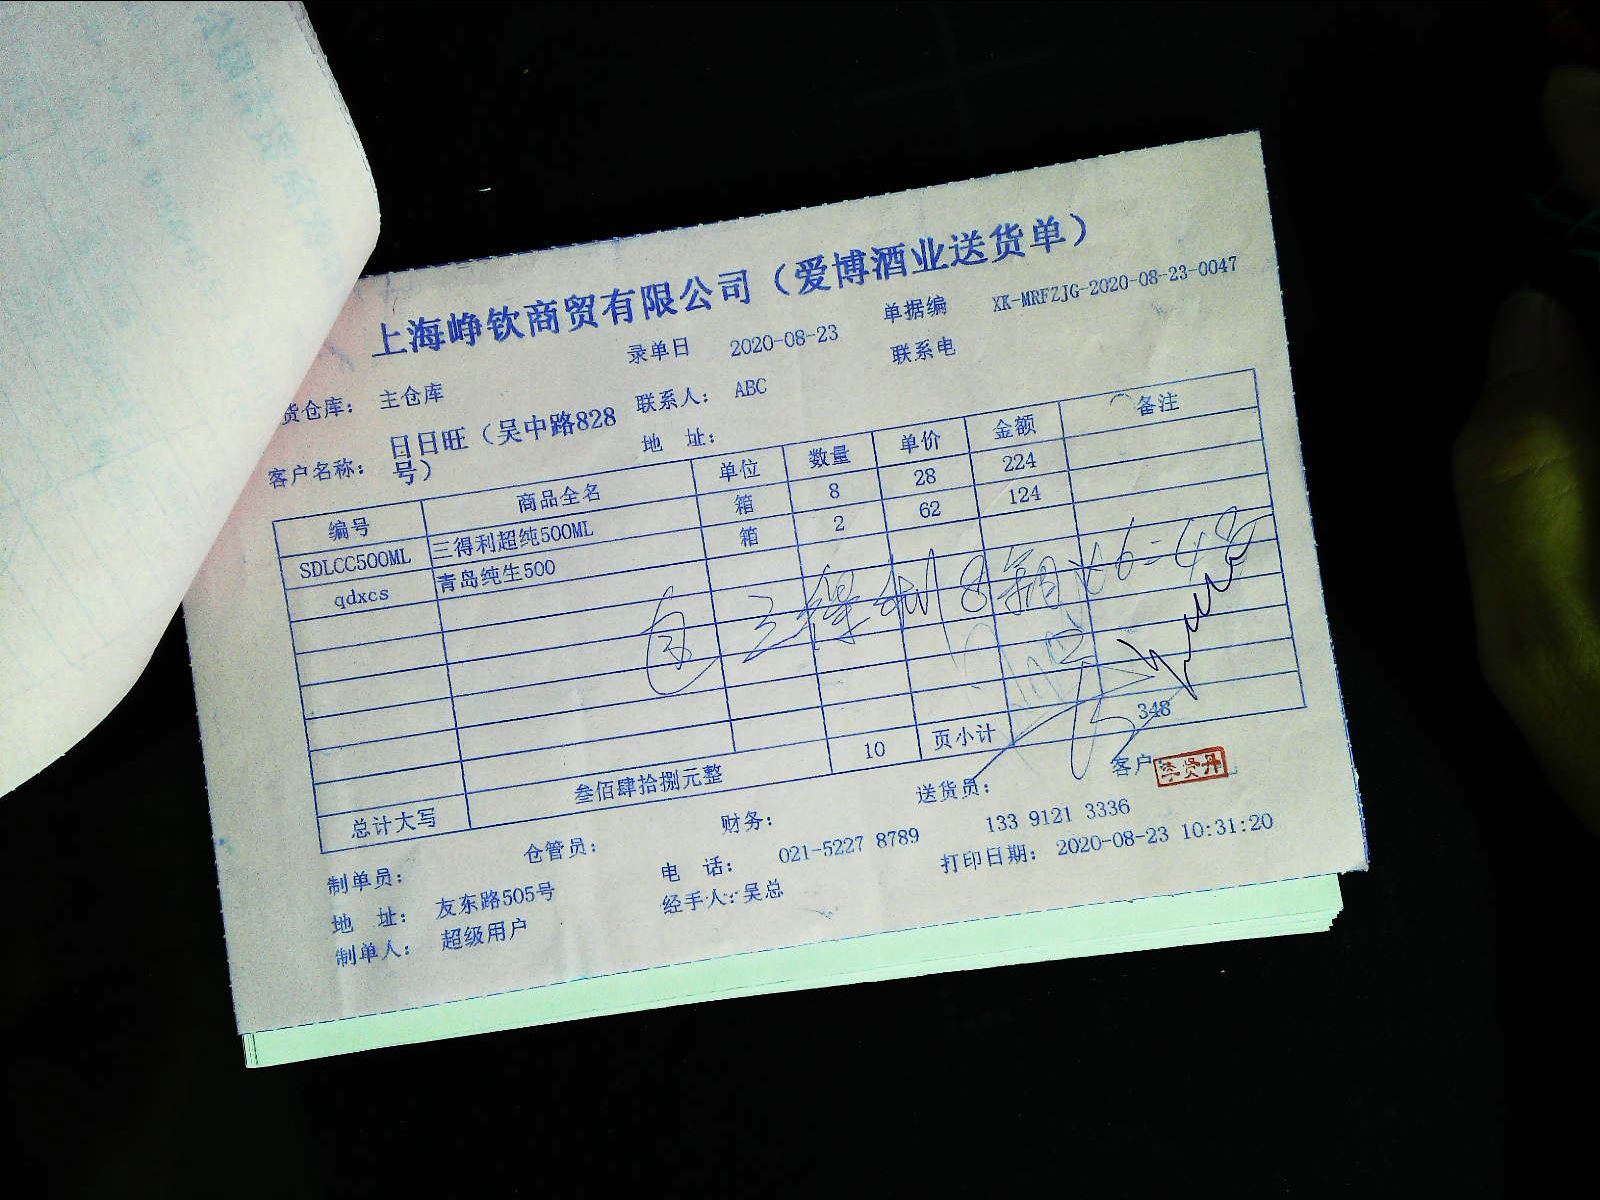 上海峥钦商贸有限公司（爱博酒业送货单）
录单日 2020-08-23 单据编 XK-MRFZJG-2020-08-23-0047
货仓库： 主仓库 联系人： ABC 联系电
客户名称： 日日旺（吴中路828号） 地 址：
编号 商品全名 单位 数量 单价 金额 备注
SDLCC500ML 三得利超纯500ML 箱 8 28 224
qdxcs 青岛纯生500 箱 2 62 124
三得利8箱×6=48
10 页小计 348
总计大写 叁佰肆拾捌元整
制单员： 仓管员： 财务： 送货员： 客户
李贤丹
地 址： 友东路505号 电 话： 021-5227 8789 133 9121 3336
制单人： 超级用户 经手人： 吴总 打印日期： 2020-08-23 10:31:20